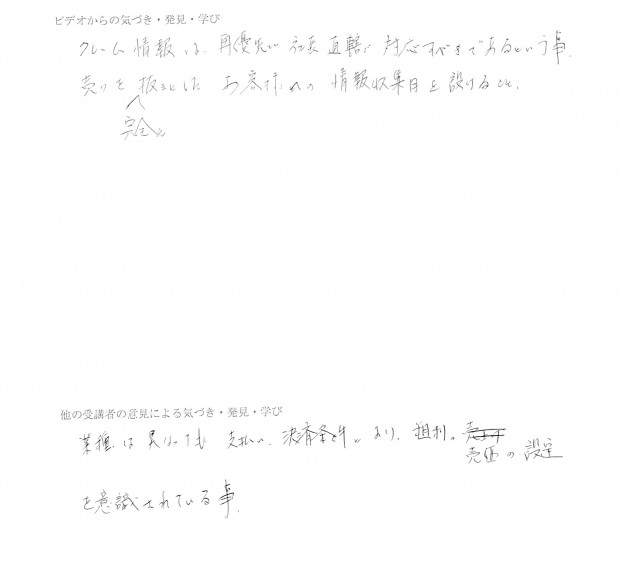 ビデオからの気づき・発見・学び
クレーム情報は、再優先に社長直轄で対応すべきであるという事。
売りを抜きにしたお客様への情報収集日を設けること。
完全に
他の受講者の意見による気づき・発見・学び
業種は異なっても支払い、決済条件により、粗利。
売価の設定
を意識されている事。